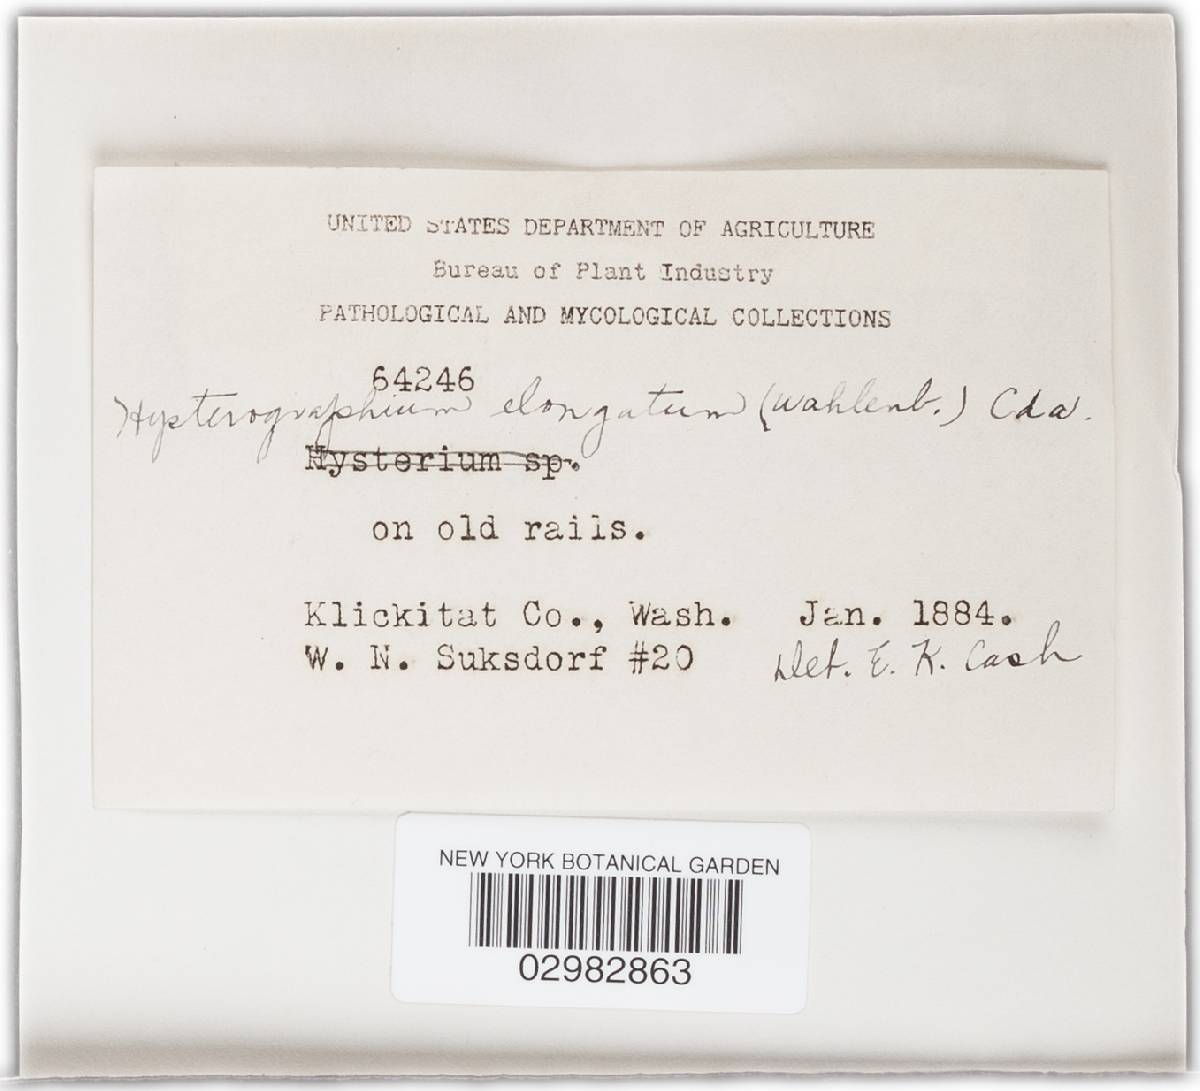 UNITED STATES DEPARTMENT OF AGRICULTURE
Bureau of Plant Industry
PATHOLOGICAL AND MYCOLOGICAL COLLECTIONS
64246
Hysterographium elongatum (Wahlenb.) Cda.
Hysterium sp.
on old rails.
Klickitat Co., Wash. Jan. 1884.
W. N. Suksdorf #20 Det. E. K. Cash
NEW YORK BOTANICAL GARDEN
02982863